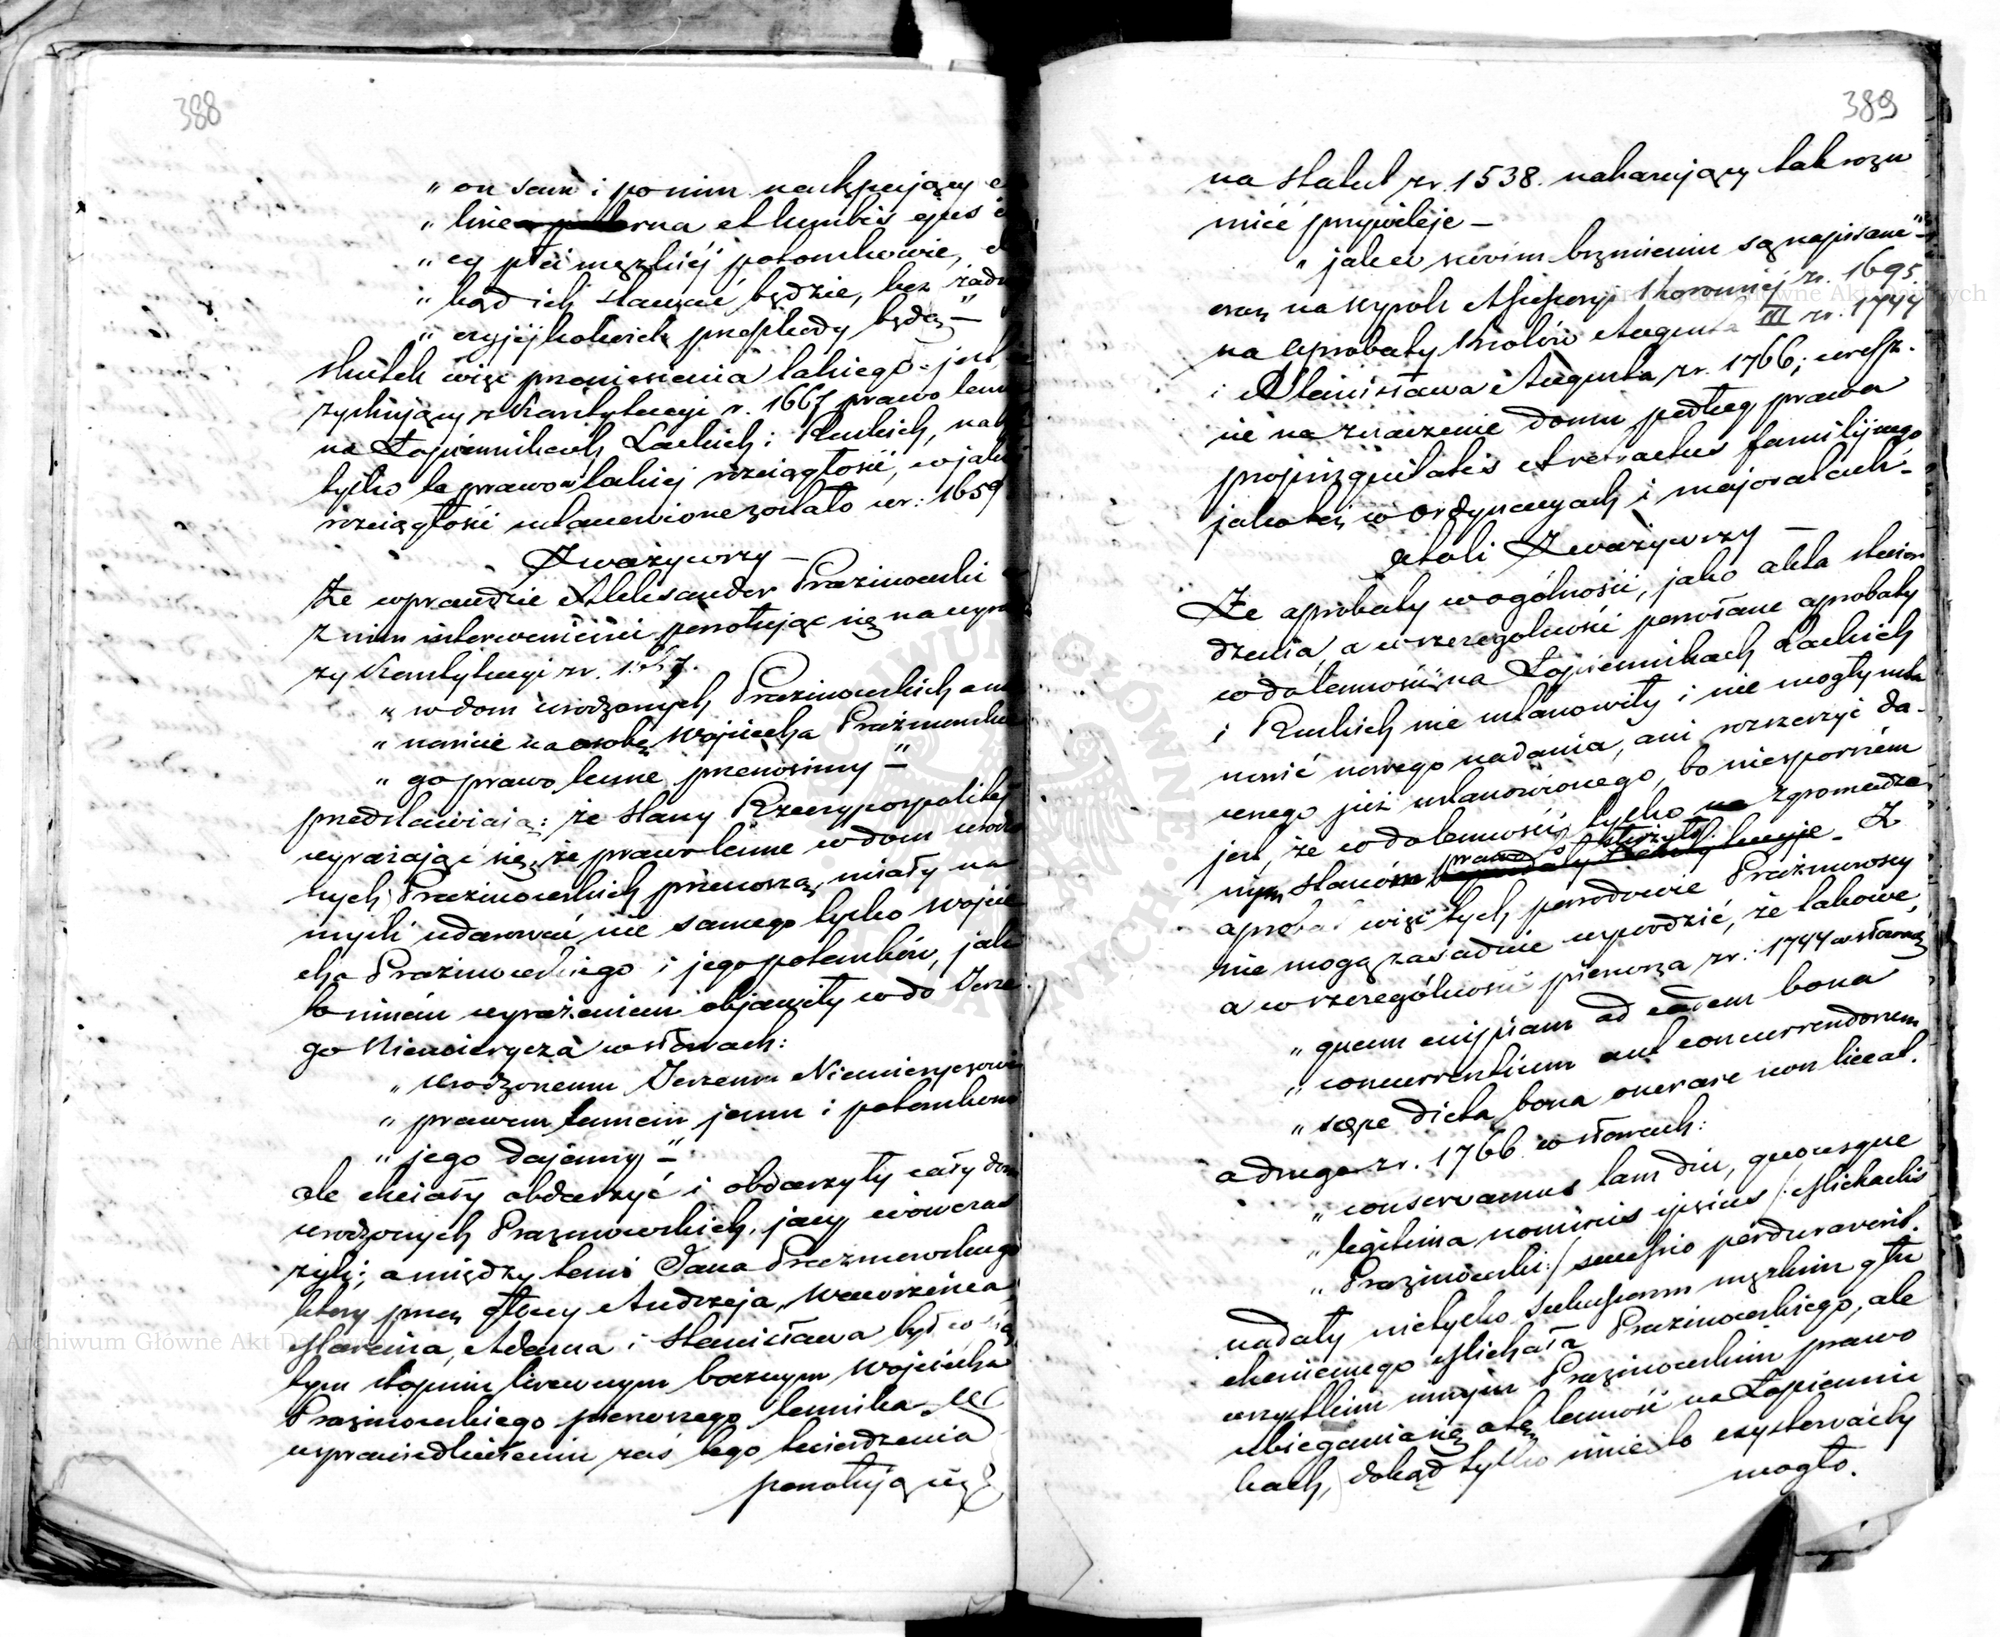 388
„on sam i po nim następujący
„linea paterna et lumbis ejus
„cy płci męzkiéj potomkowie,
„kąd ich stawać będzie, bez żadn
„czyjéjkolwiek przeszkody będą —"
skutek więc przeniesienia takiego jest
zyskujący z Konstytucyi r. 1667 prawo lenne
na Łopiennikach Lackich i Ruskich, nabył
tylko to prawo w takiéj rozciągłości, w jakiéj
rozciągłości ustanowione zostało w r: 1659
Zważywszy —
Że wprawdzie Aleksander Prażmowski
z nim interwenienci powołując się na wyra
zy Konstytucyi z r. 1667.
„w dom urodzonych Prażmowskich a mia
„nowicie na osobę Wojciecha Prażmowskie
„go prawo lenne przenosimy —"
przedstawiają: że Stany Rzeczypospolitéj
wyrażając się, że prawo lenne w dom urodzo
nych Prażmowskich przenoszą, miały na
myśli udarować nie samego tylko Wojcie
cha Prażmowskiego i jego potomków, jak
to inném wyrażeniem objawiły co do Jerze
go Niemierycza w słowach:
„urodzonemu Jerzemu Niemieryczowi
„prawem lennem jemu i potomkom
„jego dajemy —"
ale chciały obdarzyć i obdarzyły cały dom
urodzonych Prażmowskich, jacy wówczas
żyli; a między temi Jana Prażmowskiego
który przez głowy Andrzeja, Wawrzeńca,
Marcina, Adama i Stanisława był w
tym stopniu krewnym bocznym Wojciecha
Prażmowskiego pierwszego lennika. W
usprawiedliwieniu zaś tego twierdzenia
powołują się
389
na statut z r. 1538. nakazujący tak rozu
mieć przywileje —
„jak w swoim brzmieniu są napisane" —
oraz na wyrok Assessoryi Koronnéj z r. 1695
na aprobaty Królów Augusta III z r. 1744
i Stanisława Augusta z r. 1766; wresz-
cie na znaczenie domu podług prawa
propinquitatis et retractus familijnego
jakotéż w ordynacyach i majoratach —
atoli Zważywszy —
Że aprobaty w ogólności, jako akta stwier
dzenia, a w szczególności powołane aprobaty
co do lenności na Łopiennikach Lackich
i Ruskich nie stanowiły i nie mogły usta
nowić nowego nadania, ani rozszerzyć da-
wnego już ustanowionego, bo niespornem
jest, że co do lenności, tylko na Zgromadzo
nym Stanom prawo to służyło. Z
aprobat więc tych powodowie Prażmowscy
nie mogą zasadnie wywodzić, że takowe,
a w szczególności pierwsza z r. 1744 w słowach
„quem cuipiam ad eadem bona
„concurrentium aut concurrendorum
„sæpe dicta bona onerare non liceat.
a druga z r. 1766 w słowach:
„conservamus tam diu, quousque
„legitima nominis ipsius /: Michaelis
„Prażmowski :/ successio perduraverit.
nadały nietylko sukcessorom męzkim
Michała Prażmowskiego, ale
wszystkim innym Prażmowskim prawo
ubiegania się o tę lenność na Łopienni
kach, dokąd tylko imie to exystowaćby
mogło.
Archiwum Główne Akt Dawnych
Archiwum Główne Akt Dawnych
ARCHIWUM GŁÓWNE AKT DAWNYCH